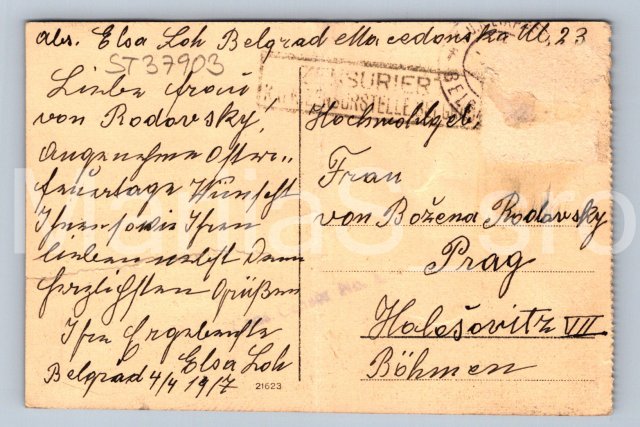 abs. Elsa Loh Belgrad Macedonska Ul. 23
ST37903
ZENSURIERT
Liebe Frau
von Rodovsky,
Angenehme Oster..
feuertage Wünscht
Ihnen sowie Ihren
lieben nebst den
herzlichsten Grüßen
Ihre Ergebenste
Elsa Loh
Belgrad 4/4 1917
Hochwohlgeb
Frau
von Božena Rodovsky
Prag
Holešovitz VII
Böhmen
21623